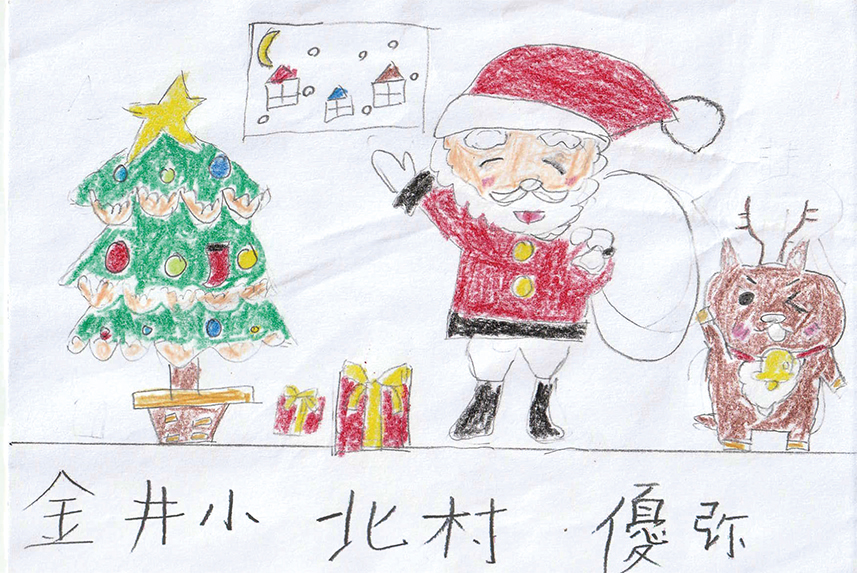 金井小 北村 優弥